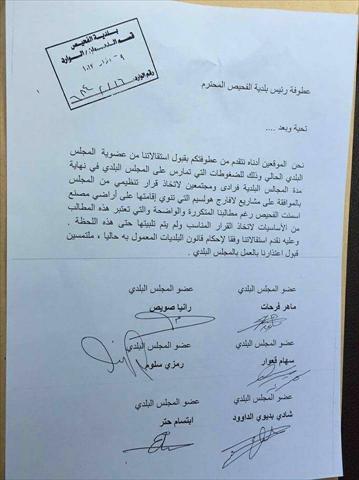 بلدية الفحيص
عطوفة رئيس بلدية الفحيص المحترم
تحية وبعد ....
نحن الموقعين أدناه نتقدم من عطوفتكم بقبول استقالاتنا من عضوية المجلس
البلدي الحالي وذلك للضغوطات التي تمارس على المجلس البلدي في نهاية
مدة المجالس البلدية فرادى ومجتمعين لاتخاذ قرار تنظيمي من المجلس
بالموافقة على مشاريع لافارج هولسيم التي تنوي إقامتها على أراضي مصنع
اسمنت الفحيص رغم مطالبنا المتكررة والواضحة والتي تعتبر هذه المطالب
من الأساسيات لاتخاذ القرار المناسب ولم يتم تلبيتها حتى هذه اللحظة .
وعليه نقدم استقالاتنا وفقا لإحكام قانون البلديات المعمول به حاليا ، ملتمسين
قبول اعتذارنا بالعمل بالمجلس البلدي .
عضو المجلس البلدي
ماهر فرحات
عضو المجلس البلدي
رانيا صويص
عضو المجلس البلدي
سهام قعوار
عضو المجلس البلدي
رمزي سلوم
عضو المجلس البلدي
شادي بديوي الداوود
عضو المجلس البلدي
ابتسام حتر